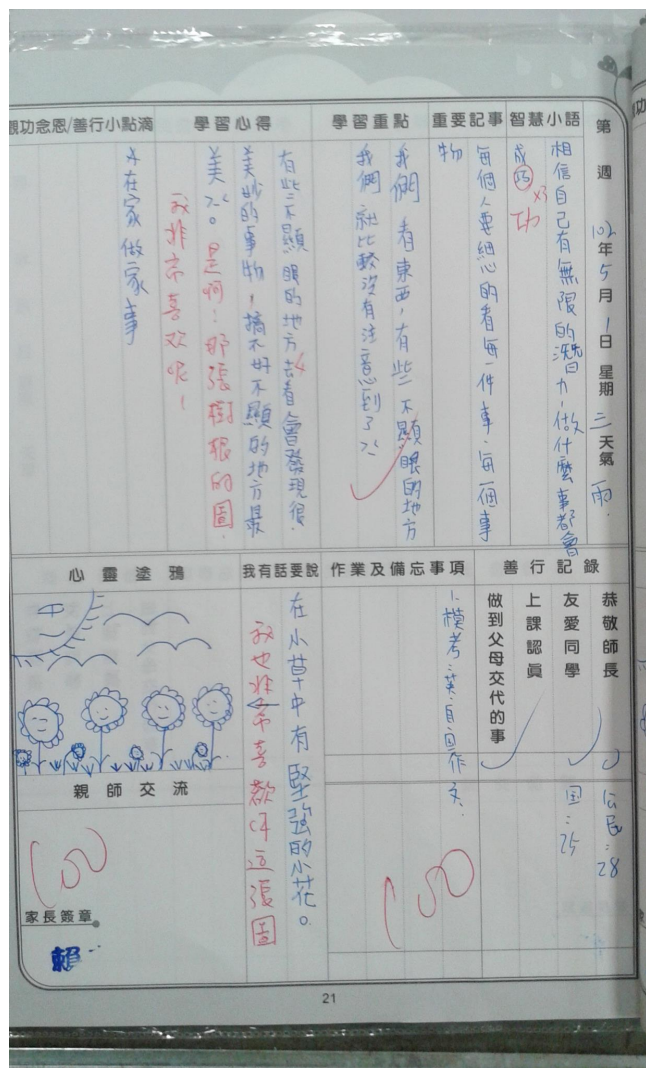 第 週 102年5月1日 星期三 天氣 雨
智慧小語
相信自己有無限的潛力,做什麼事都會
成巧 x3 功
重要記事
每個人要細心的看每一件事,每一個事
物
學習重點
我們看東西,有些不顯眼的地方
我們就比較沒有注意到了
學習心得
有些不顯眼的地方去看會發現很
美妙的事物,搞不好不顯的地方最
美。是啊!那張樹根的圖
我非常喜欢呢!
觀功念恩/善行小點滴
在家做家事
善行記錄
恭敬師長
友愛同學
上課認真
做到父母交代的事
公民:28
国:25
作業及備忘事項
1.模考:英.自.国.作文.
100
我有話要說
在小草中有堅強的小花。
我也非常喜歡這張圖
心靈塗鴉
中
親師交流
100
家長簽章
賴
21